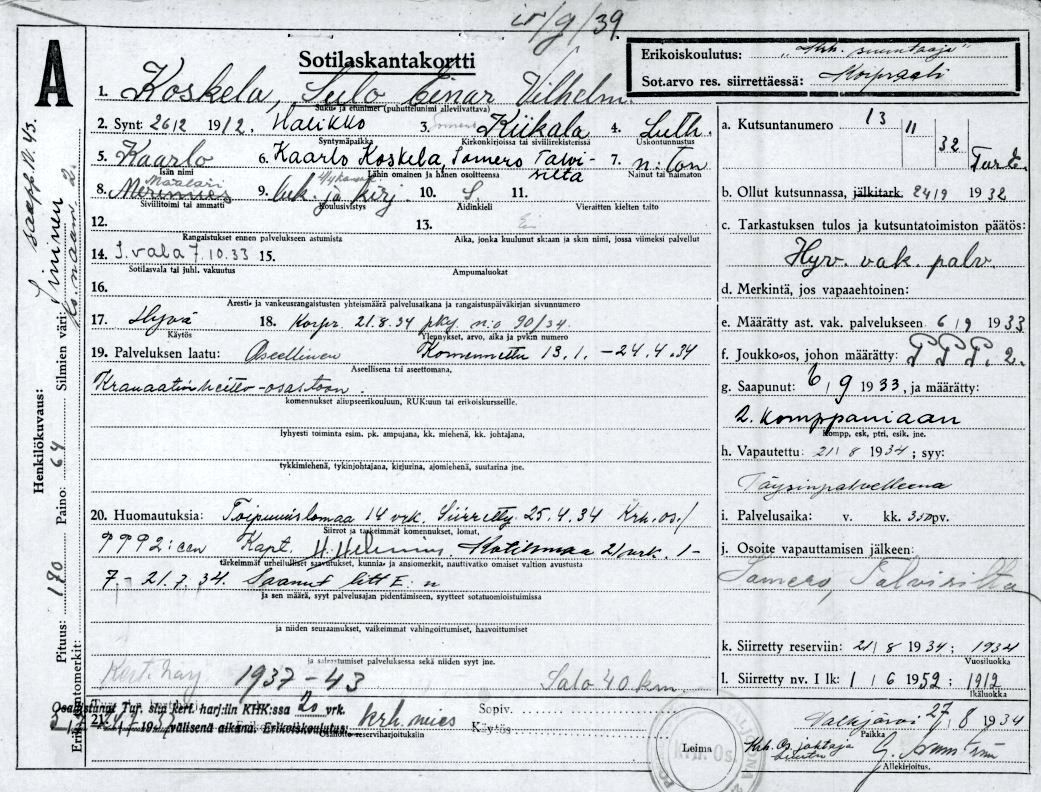 /9/39
A
Sotilaskantakortti
Erikoiskoulutus: "Krh. suuntaaja"
Sot.arvo res. siirrettäessä: Korpraali
1. Koskela, Sulo Einar Vilhelm.
Suku- ja etunimet (puhuttelunimi alleviivattava)
2. Synt. 26/2 1912. Halikko 3. Somero Kiikala 4. Luth.
Syntymäpaikka Kirkonkirjoissa tai siviilirekisterissä Uskontunnustus
5. Kaarlo 6. Kaarlo Koskela, Somero Talvi- 7. n:ton
silta
Isän nimi Lähin omainen ja hänen osoitteensa Nainut tai naimaton
8. Merimies Maalari 9. luk. ja kirj. 10. S. 11.
Siviilitoimi tai ammatti Koulusivistys Äidinkieli Vieraitten kielten taito
12. 13. Ei
Rangaistukset ennen palvelukseen astumista Aika, jonka kuulunut sk:aan ja sk:n nimi, jossa viimeksi palvellut
14. S.vala 7.10.33 15.
Sotilasvala tai juhl. vakuutus Ampumaluokat
16.
Aresti- ja vankeusrangaistusten yhteismäärä palvelusaikana ja rangaistuspäiväkirjan sivunumero
17. Hyvä 18. Korpr. 21.8.34 pky n:o 90/34.
Käytös Ylennykset, arvo, aika ja pvk:n numero
19. Palveluksen laatu: Aseellinen Komennettu 13.1. - 24.4.34
Aseellisena tai aseettomana,
Kranaatinheitto-osastoon.
komennukset aliupseerikouluun, RUK:uun tai erikoiskursseille.
lyhyesti toiminta esim. pk. ampujana, kk. miehenä, kk. johtajana,
tykkimiehenä, tykinjohtajana, kirjurina, ajomiehenä, suutarina jne.
20. Huomautuksia: Toipumislomaa 14 vrk. Siirretty 25.4.34 Krh.os./
Siirrot ja tärkeimmät komennukset, lomat,
PPP2:een Kapt. H. Helenius. Kotilomaa 21 vrk. 1-
tärkeimmät urheilulliset saavutukset, kunnia- ja ansiomerkit, nauttivatko omaiset valtion avustusta
7. - 21.7.34. Saanut litt E:n
ja sen määrä, syyt palvelusajan pidentämiseen, syytteet sotatuomioistuimissa
ja niiden seuraamukset, vaikeimmat vahingoittumiset, haavoittumiset
ja sairastumiset palveluksessa sekä niiden syyt jne.
Kert. harj 1937-43 Salo 40 km.
Osallistunut Tur. sl:n kert. harj:iin KHK:ssa 20 vrk. Sopiv.
21. 19 välisenä aikana. Erikoiskoulutus: krh.mies Käytös
Osanotto reserviharjoituksiin
a. Kutsuntanumero 13 11
32 Tur E.
b. Ollut kutsunnassa, jälkitark. 24/9 1932
c. Tarkastuksen tulos ja kutsuntatoimiston päätös:
Hyv. vak. palv.
d. Merkintä, jos vapaaehtoinen:
e. Määrätty ast. vak. palvelukseen 6/9 1933
f. Joukko-os, johon määrätty: PPP. 2.
g. Saapunut: 6/9 1933, ja määrätty:
2. komppaniaan
Kompp, esk, ptri, esik. jne.
h. Vapautettu: 21/8 1934; syy:
Täysinpalvelleena
i. Palvelusaika: v. kk. 350 pv.
j. Osoite vapauttamisen jälkeen:
Somero, Talvisilta
k. Siirretty reserviin: 21/8 1934; 1934
Vuosiluokka
l. Siirretty nv. I lk: 1/6 1952; 1912
Ikäluokka
Valkjärvi 27/8 1934
Paikka
Leima
Krh. Os. johtaja
Allekirjoitus.
Henkilökuvaus:
Pituus: 170 Paino: 64 Silmien väri: Sininen
Erikoistuntomerkit:
saapp. N. 43.